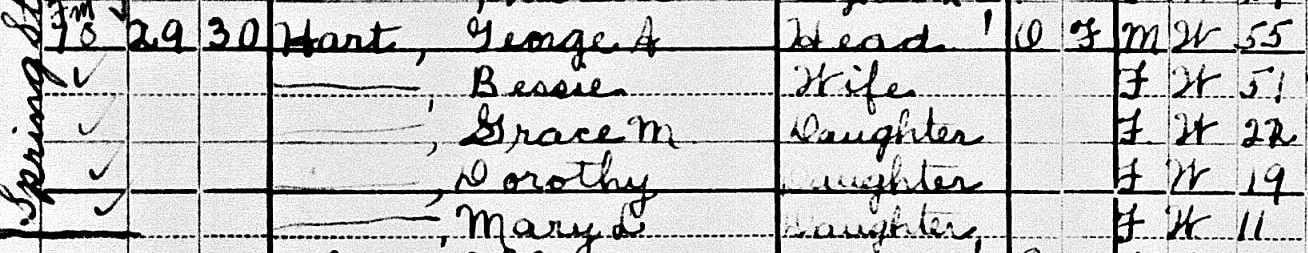 Spring St
Fm
78 29 30 Hart, George A Head 1 O F M W 55
———, Bessie Wife F W 51
———, Grace M Daughter F W 22
———, Dorothy Daughter F W 19
———, Mary L Daughter F W 11